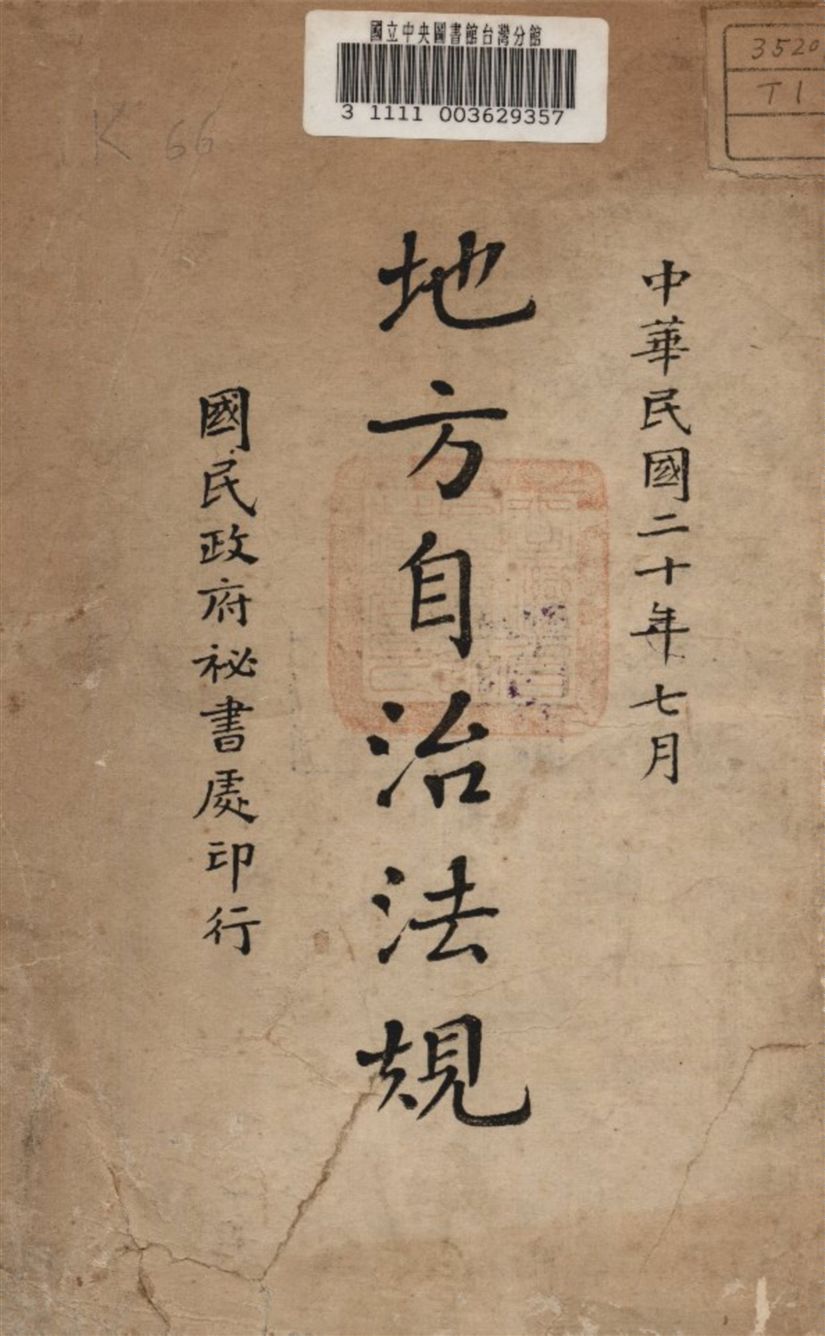 國立中央圖書館台灣分館
3 1111 003629357
3520
T1
K 66
中華民國二十年七月
地方自治法規
國民政府祕書處印行